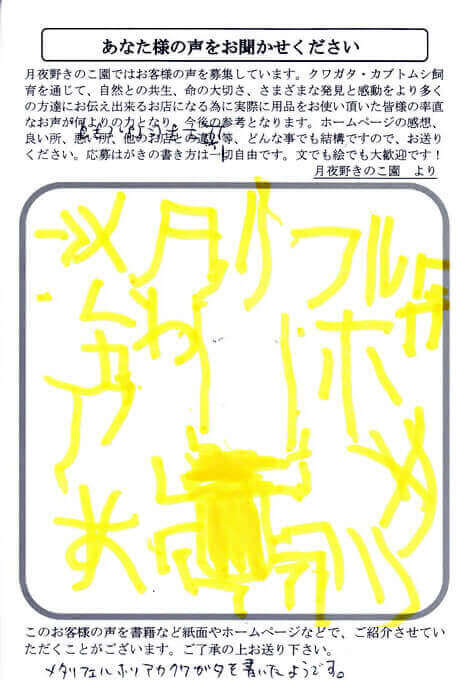 あなた様の声をお聞かせください
月夜野きのこ園ではお客様の声を募集しています。クワガタ・カブトムシ飼
育を通じて、自然との共生、命の大切さ、さまざまな発見と感動をより多く
の方達にお伝え出来るお店になる為に実際に用品をお使い頂いた皆様の率直
なお声が何よりの力となり、今後の参考となります。ホームページの感想、
良い所、悪い所、他のお店との違い等、どんな事でも結構ですので、お送り
ください。応募はがきの書き方は一切自由です。文でも絵でも大歓迎です！
月夜野きのこ園　より
メタリフル
ホ
このお客様の声を書籍など紙面やホームページなどで、ご紹介させてい
ただくことがございます。ご了承の上お送り下さい。
メタリフェルホソアカクワガタを書いたようです。